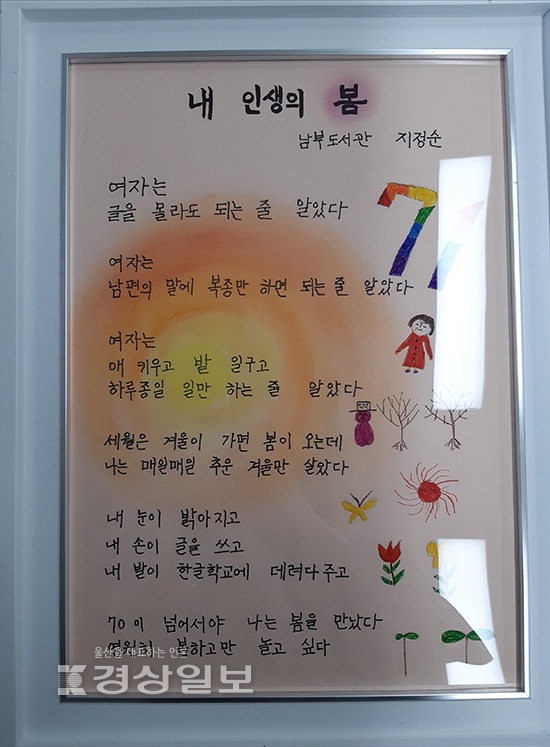 내 인생의 봄
남부도서관 지정순
여자는
글을 몰라도 되는 줄 알았다
여자는
남편의 말에 복종만 하면 되는 줄 알았다
여자는
애 키우고 밭 일구고
하루종일 일만 하는 줄 알았다
세월은 겨울이 가면 봄이 오는데
나는 매일매일 추운 겨울만 살았다
내 눈이 밝아지고
내 손이 글을 쓰고
내 발이 한글학교에 데려다주고
70이 넘어서야 나는 봄을 만났다
영원히 봄하고만 놀고 싶다
71
울산을 대표하는 언론
경상일보